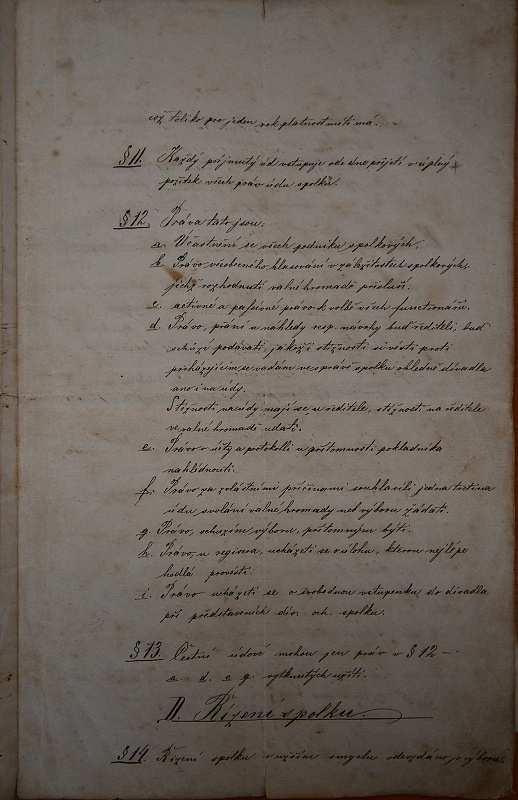 což toliko pro jeden rok platnost míti má.
§ 11. Každý prijmutý úd vstupuje ode dne přijetí v úplný
požitek všech práv údu spolku.
§ 12. Práva tato jsou:
a. Účastnění se všech podniku spolkových.
b. Právo všeobecného hlasování v záležitostech spolkových,
jichž rozhodnutí valné hromadě přísluší.
c. activné a passivné právo k volbě všech functionářů.
d. Právo, přání a náhledy resp. návrhy buď řediteli, buď
schůzi podávati, jakož i stížnosti vésti proti
přicházejícím se vadám ve správě spolku ohledně divadla
ano i na údy.
Stížnosti na údy mají se u ředitele, stížnosti na ředitele
ve valné hromadě udati.
e. Právo v účty a protokolli u přítomnosti pokladníka
nahlédnouti.
f. Právo za zvláštními příčinami souhlasili jedna třetina
údu svolání valné hromady neb výboru žádati.
g. Právo, schuzím výboru, přítomným býti.
h. Právo, u regisera, ucházeti se o úlohu, kterou nejlépe
hodlá provésti.
i. Právo ucházeti se o svobodnou vstupenku do divadla
při představeních div. och. spolku.
§ 13. Čestní údové mohou jen práv v § 12 --
a. d. e g. vytknutých užíti.
II. Řízení spolku.
§ 14. Řízení spolku v užším smyslu odevzdáno je výboru,